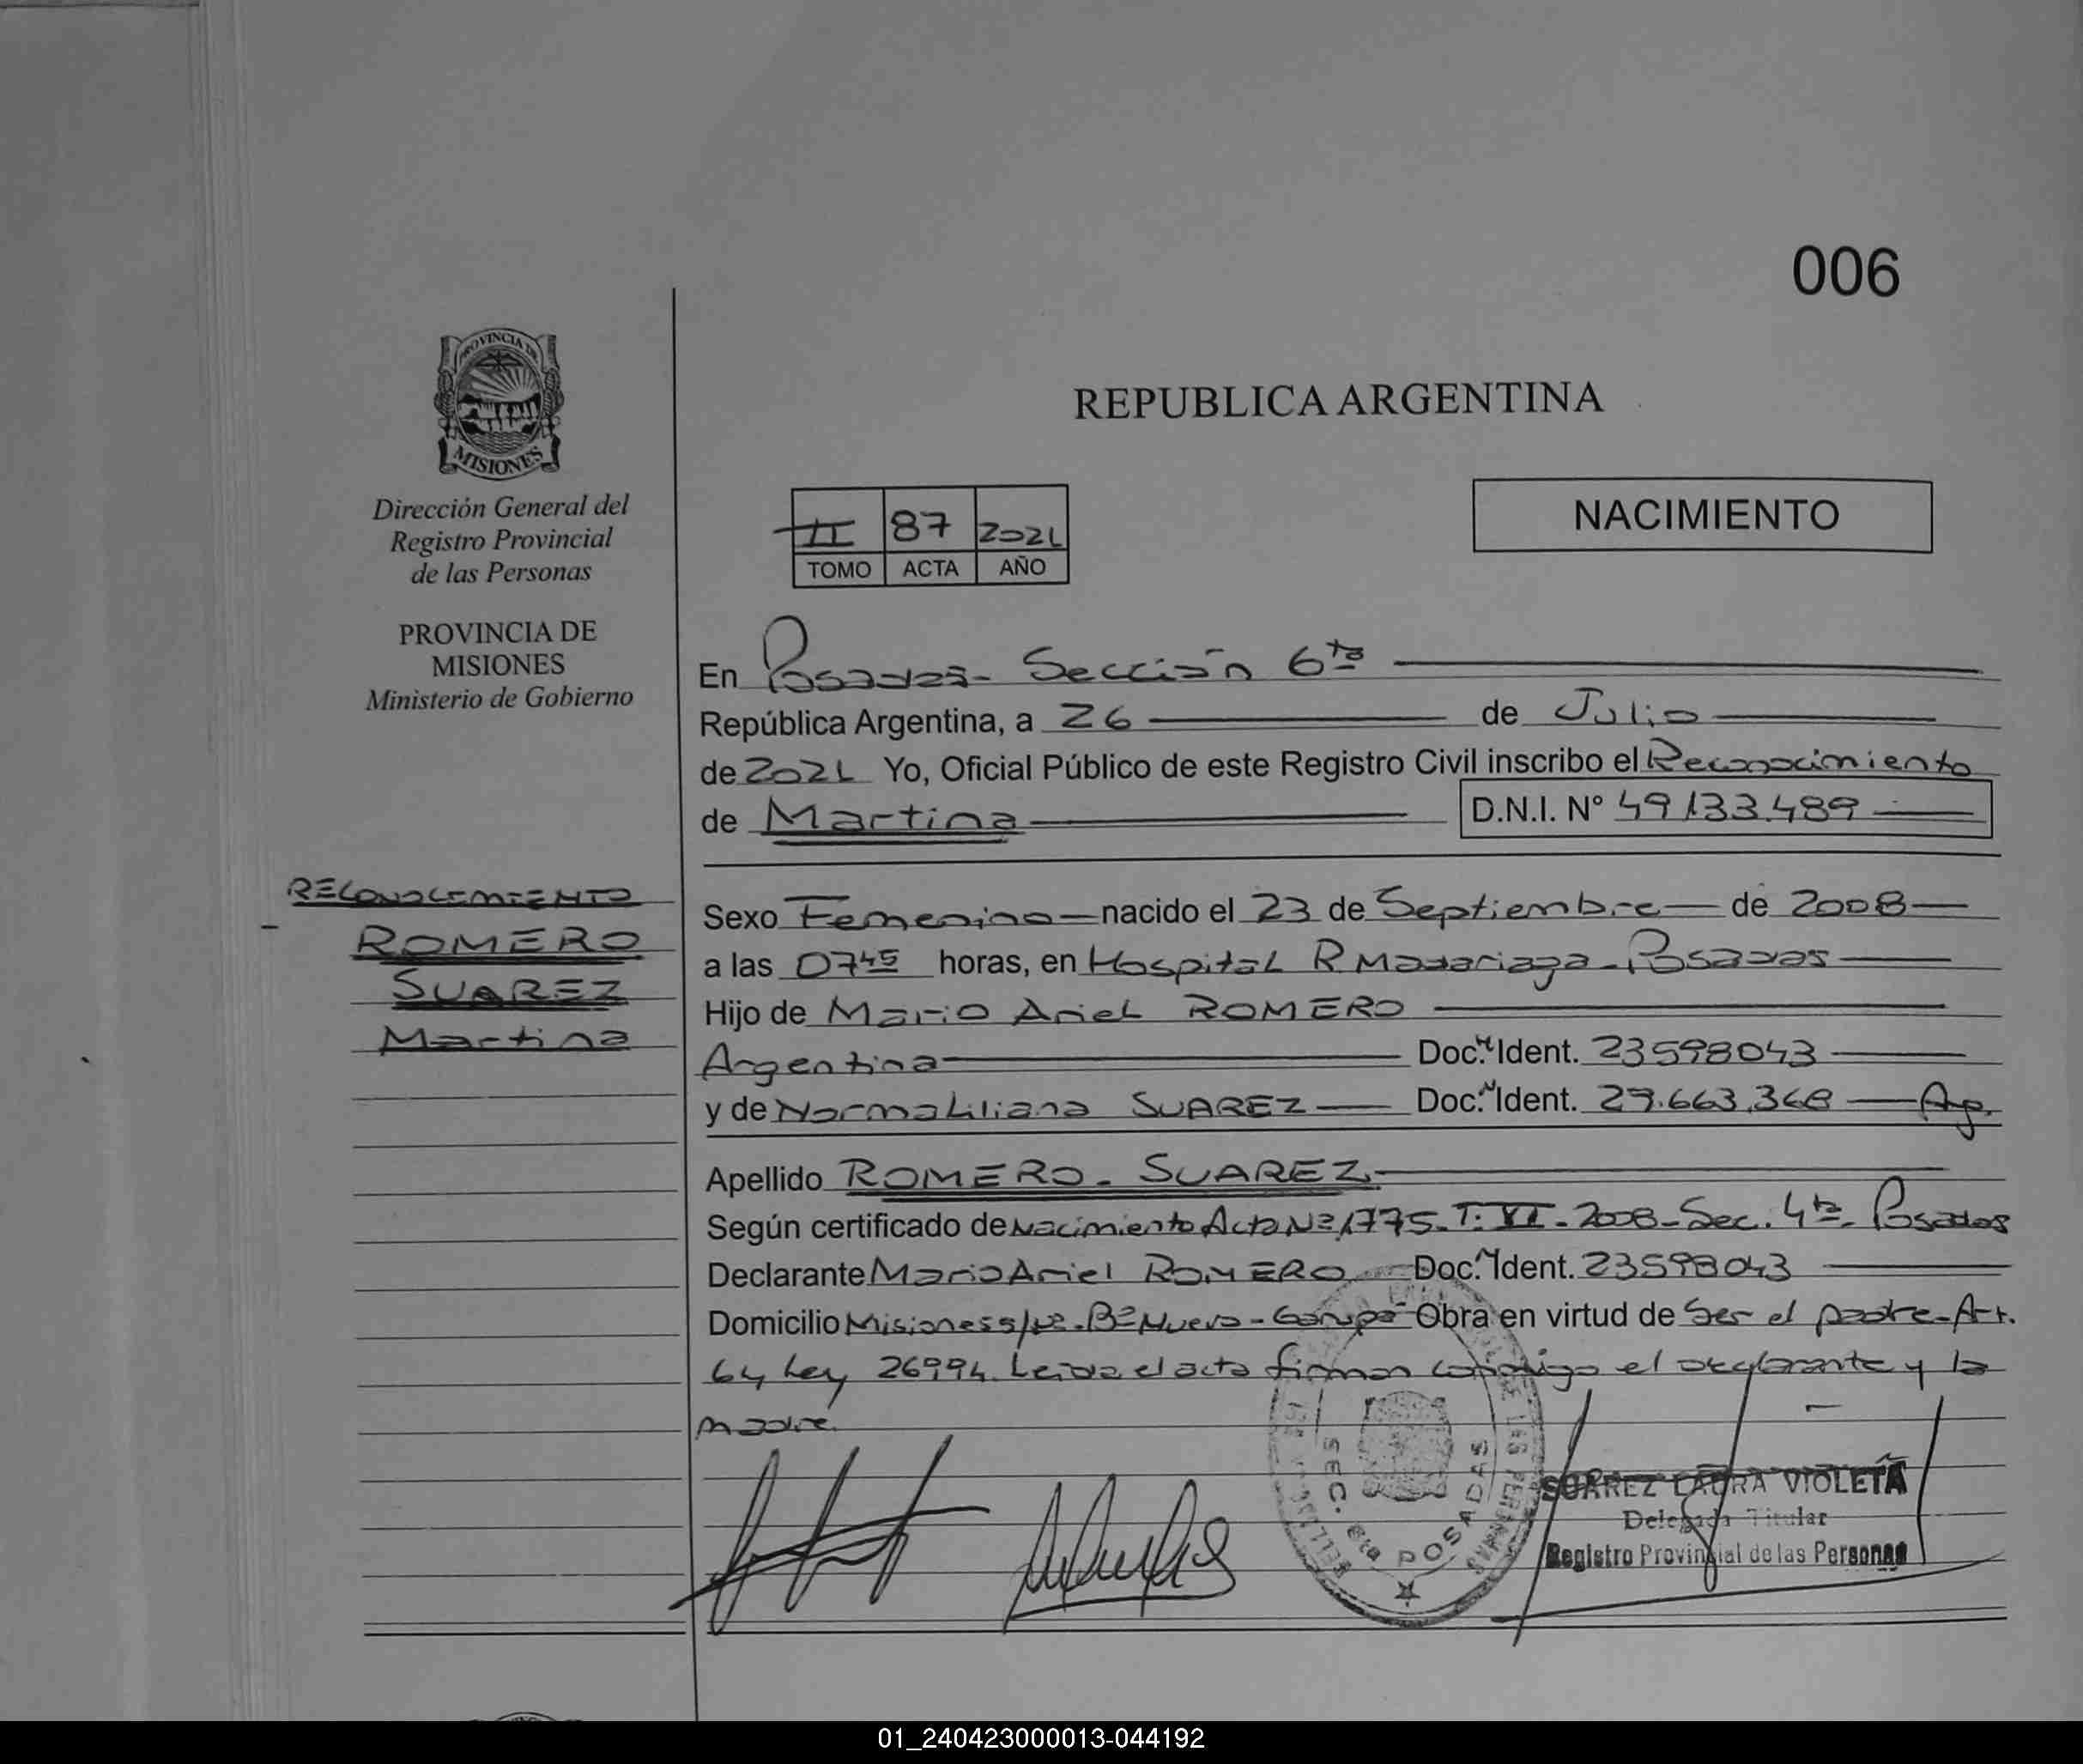 006
PROVINCIA DE
MISIONES
Dirección General del
Registro Provincial
de las Personas
PROVINCIA DE
MISIONES
Ministerio de Gobierno
RECONOCIMIENTO
ROMERO
SUAREZ
Martina
REPUBLICA ARGENTINA
II 87 2021
TOMO ACTA AÑO
NACIMIENTO
En Posadas- Sección 6ta
República Argentina, a 26 de Julio
de 2021 Yo, Oficial Público de este Registro Civil inscribo el Reconocimiento
de Martina D.N.I. N° 49.133.489
Sexo Femenino nacido el 23 de Septiembre de 2008
a las 0745 horas, en Hospital R Madariaga - Posadas
Hijo de Mario Ariel ROMERO
Argentina Doc. Ident. 23598043
y de Norma Liliana SUAREZ Doc. Ident. 29.663.368 Arg.
Apellido ROMERO - SUAREZ
Según certificado de Nacimiento Acta Nº 1775- T: VI - 2008- Sec. 4ta- Posadas
Declarante Mario Ariel ROMERO Doc. Ident. 23598043
Domicilio Misiones s/nº- Bº Nuevo - Garupá Obra en virtud de ser el padre- Art.
64 Ley 26994. Leída el acta firman conmigo el declarante y la
madre.
SEC. 6ta POSADAS
SUAREZ LAURA VIOLETA
Delegada Titular
Registro Provincial de las Personas
01_240423000013-044192